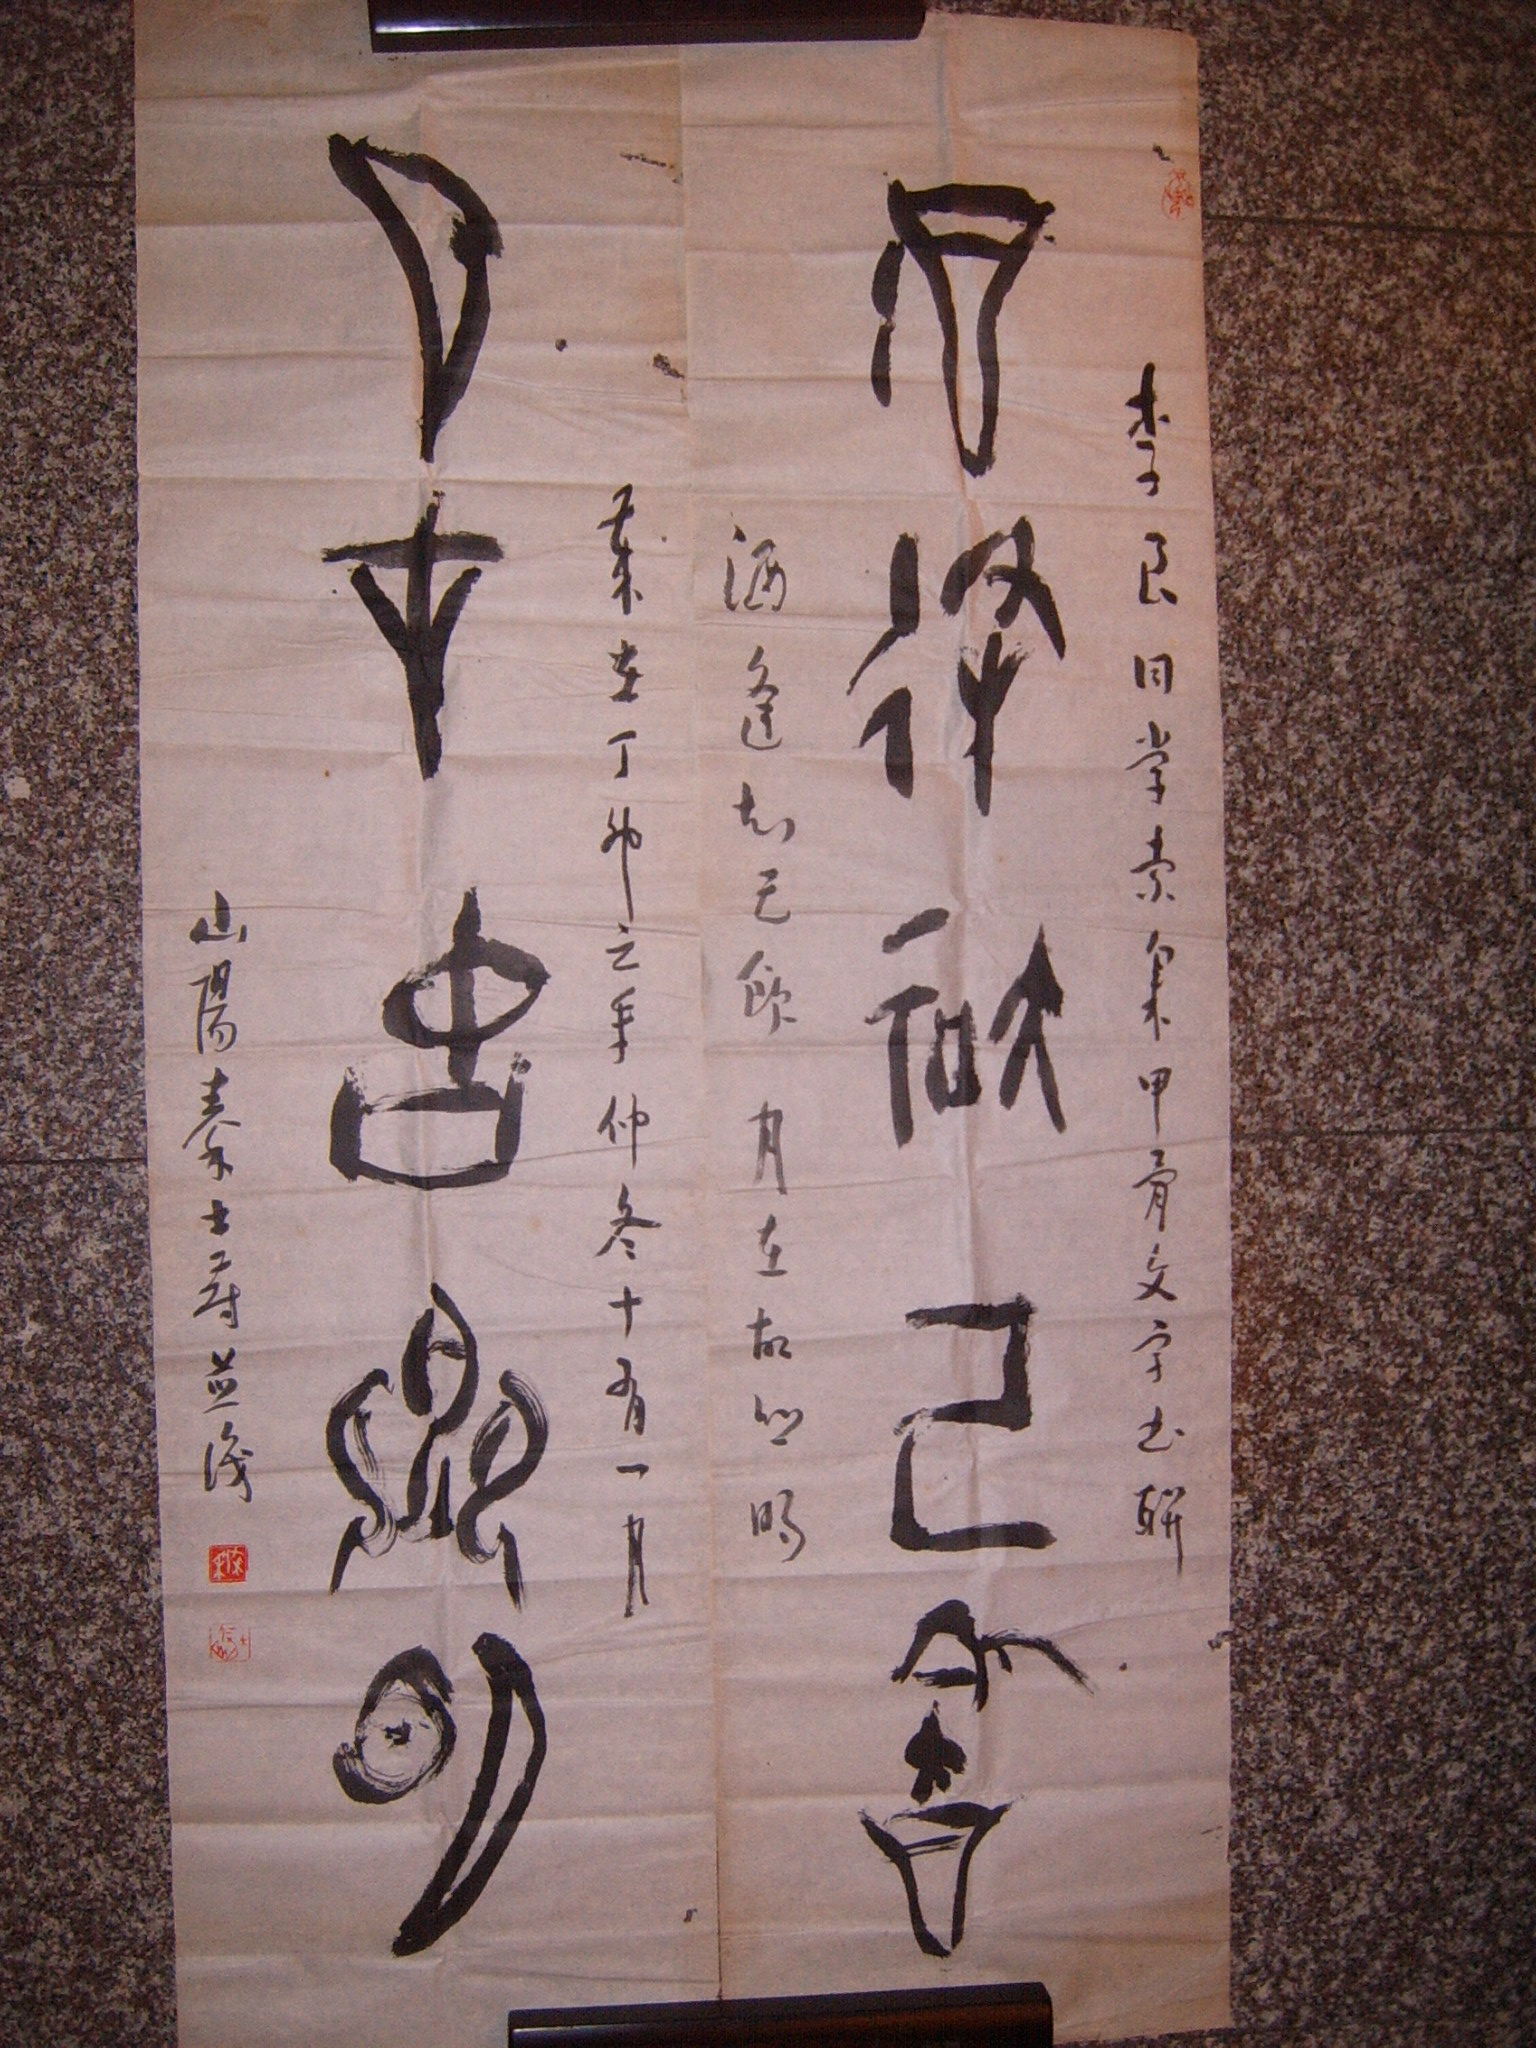 李良同学索集甲骨文字书联
酒逢知己飲
酒逢知己飲 月在故鄉明
歲在丁卯之年仲冬十有一月
月在故鄉明
山陽秦士蔚並識